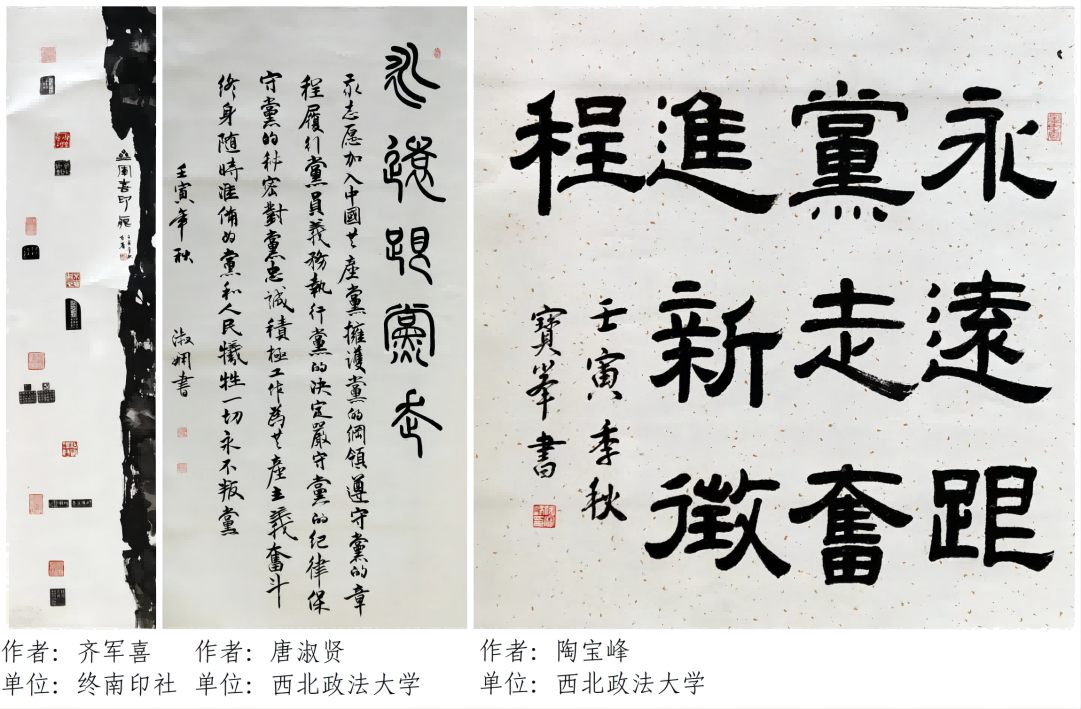 軍喜印痕
永遠跟黨走
我志愿加入中國共産黨擁護黨的綱領遵守黨的章
程履行黨員義務執行黨的決定嚴守黨的紀律保
守黨的秘密對黨忠誠積極工作為共産主義奮斗
終身隨時準備為黨和人民犧牲一切永不叛黨
壬寅年秋 淑嫻書
永遠跟
黨走奮
進新徵
程
壬寅季秋
寶峯書
作者：齐军喜
单位：终南印社
作者：唐淑贤
单位：西北政法大学
作者：陶宝峰
单位：西北政法大学